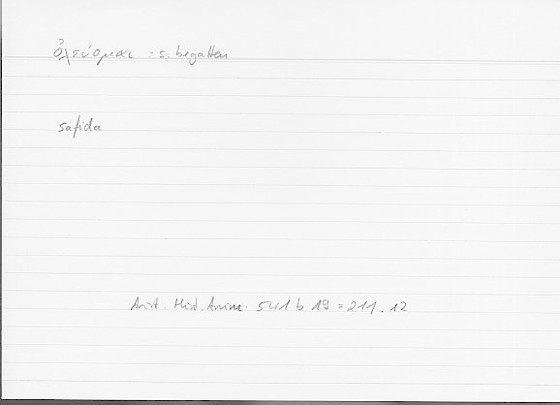 ὀχεύομαι : s. begatten
safida
Arist. Hist. Anim. 541 b 19 = 211.12